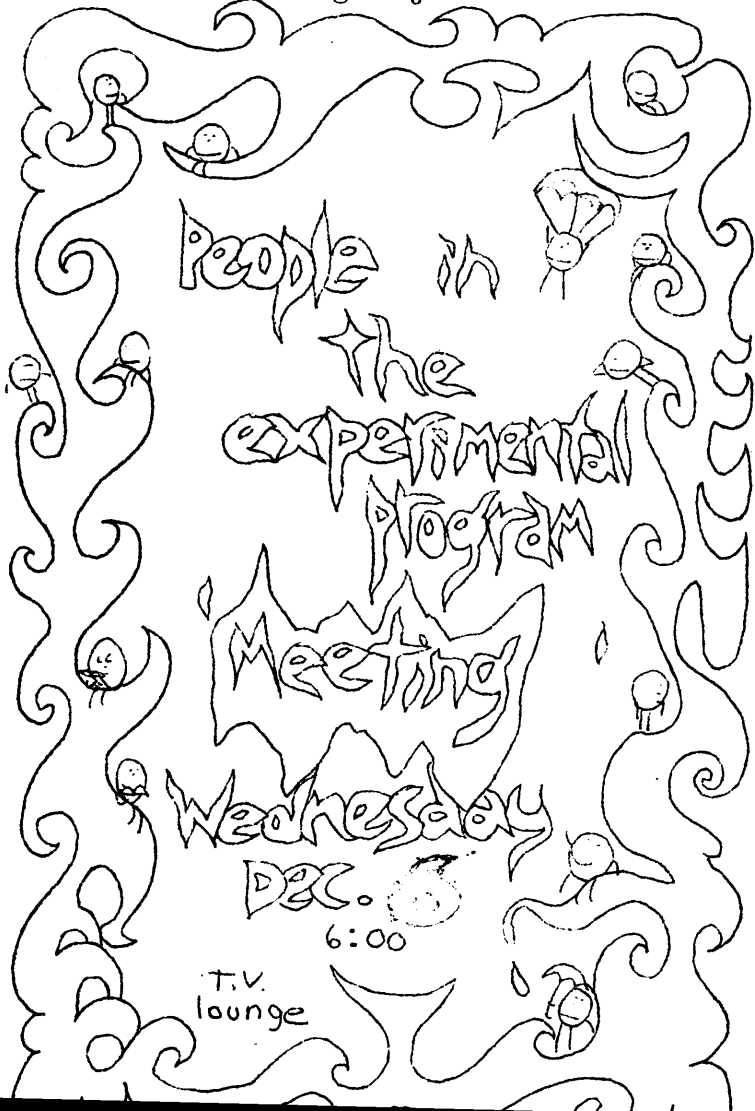 People in
the
experimental
program
Meeting
Wednesday
Dec. 6
6:00
T.V.
lounge